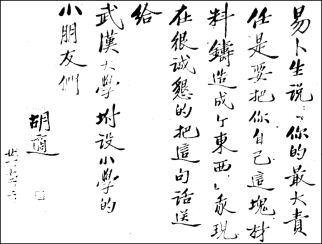 易卜生說：“你的最大責
任是要把你自己這塊材
料鑄造成个東西。”我現
在很誠懇的把這句話送
給
武漢大學坿设小學的
小朋友們
胡適